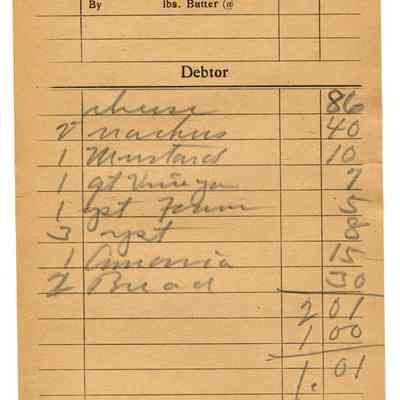 By lbs. Butter (@
Debtor
cheese 86
2 40
1 Mustard 10
1 qt 7
1 5
3 yst 8
1 Amonia 15
2 Bread 30
2 01
1 00
1. 01